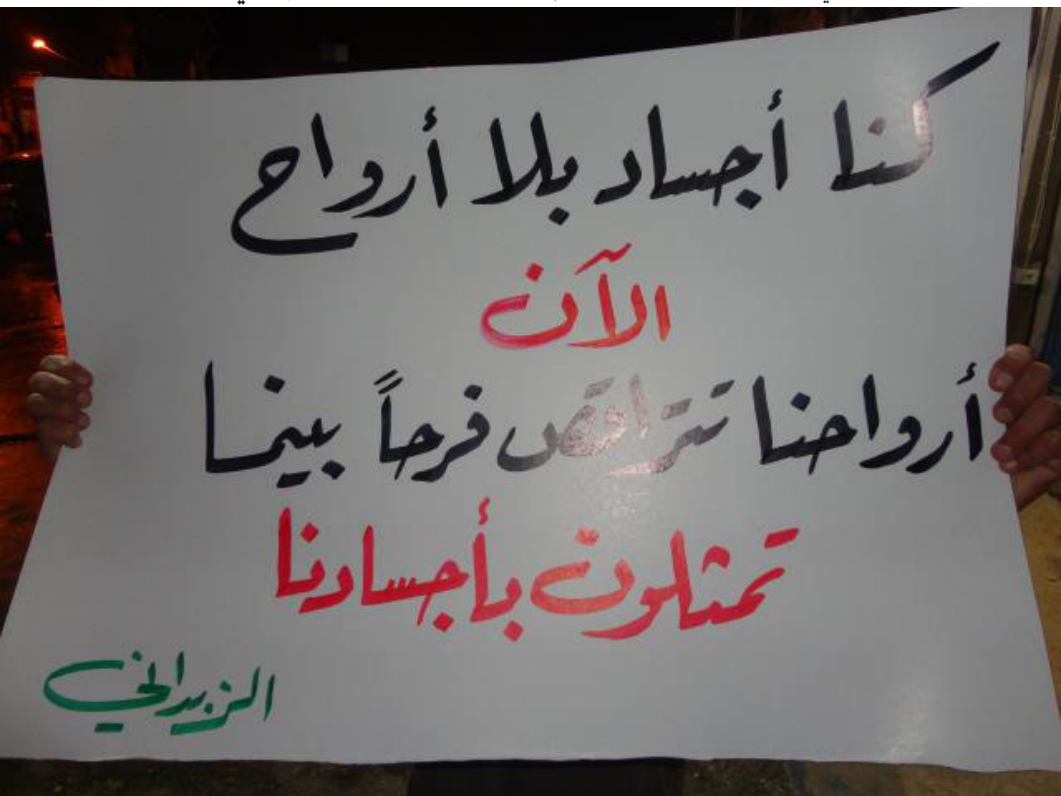 كنا أجساد بلا أرواح
الآن
أرواحنا تتراقص فرحاً بينما
تمثلون بأجسادنا
الزبداني